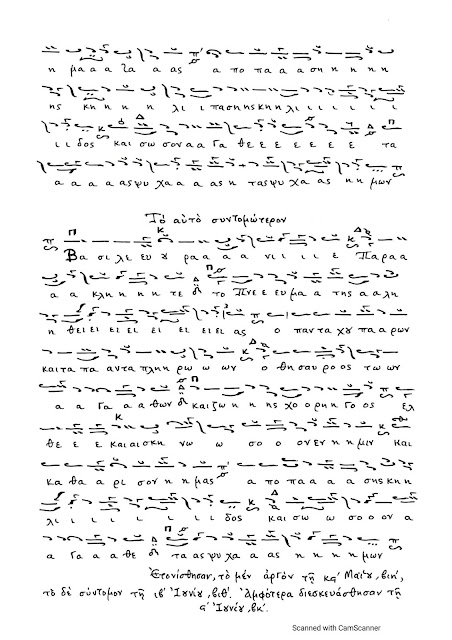 η μα α α τα α ας α πο πα α α ση η η η
ης κη η η η λι ι πασηησκηηλι ι ι ι ι ι
ι ι δος και σω σον α α Γα θε ε ε ε ε ε ε τα
α α α α ας ψυ χα α α ας η τας ψυ χα α ας η η μων
Τὸ αὐτὸ συντομώτερον
Βα σι λε ευ ȣ ρα α α νι ι ι ε Παρα α
α α κλη η η η τε το Πνε ε ευ μα α της α α λη
η θει ει ει ει ει ει ει ει ας ο παντα χȣ πα α ρων
και τα πα αντα πλη η ρω ω ων ο θη σαυ ρο ος τω ων
α α Γα α α θων και ζω η η ης χο ο ρη η Γο ος ελ
θε ε ε και αι σκη νω ω σο ο ον εν η η μιν και
κα θα α ρι σον η η μας α πο πα α α σης κη η
λι ι ι ι ι ι ι ι δος και σω ω σο ο ον α
α Γα α α θε τα ας ψυ χα α ας η η η η μων
Ἐτονίσθησαν, τὸ μὲν ἀργὸν τῇ κα' Μαΐȣ, βιη',
τὸ δὲ σύντομον τῇ ιβ' Ἰȣνίȣ, βιθ'. Ἀμφότερα διεσκευάσθησαν τῇ
ϛ' Ἰȣνίȣ, βκ'.
Scanned with CamScanner